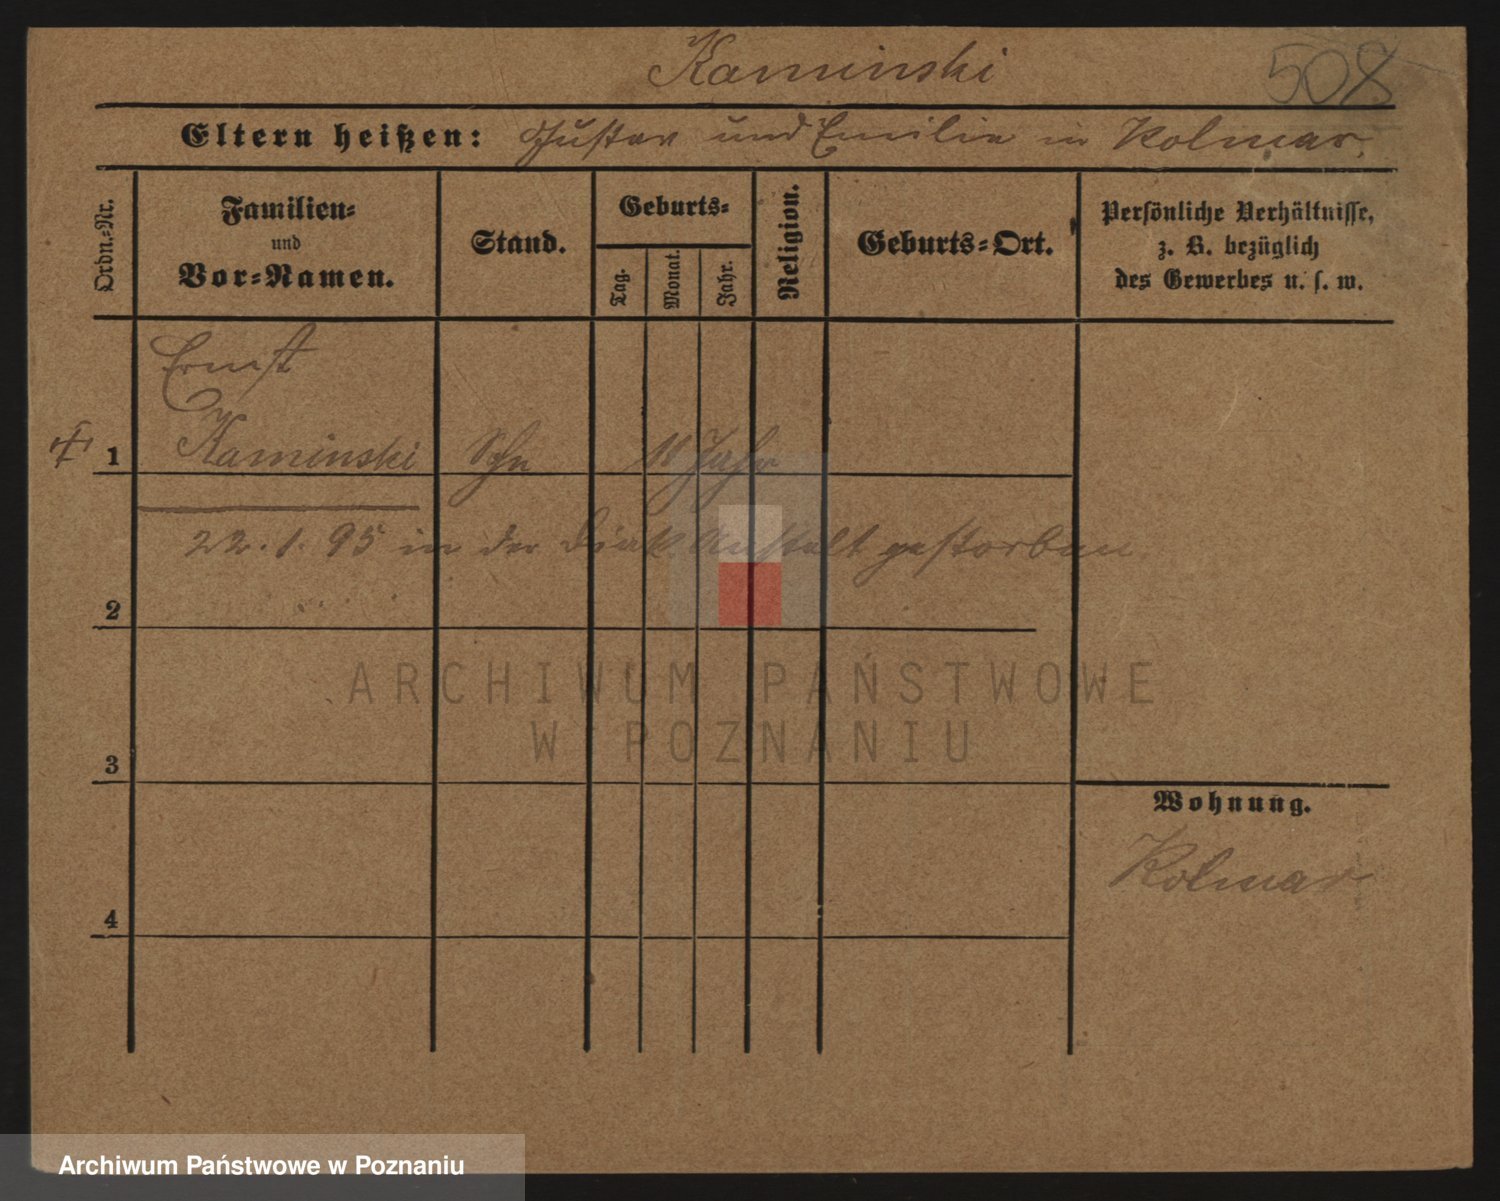 Kaminski
508
Eltern heißen: Gustav und Emilie in Kolmar.
Ordn.-Nr.
Familien-
und
Vor-Namen.
Stand.
Geburts-
Tag.
Monat.
Jahr.
Religion.
Geburts-Ort.
Persönliche Verhältnisse,
z. B. bezüglich
des Gewerbes u. s. w.
Ernst
1 Kaminski Sohn 11 Jahr
22.1.95 in der Diak. Anstalt gestorben.
2
ARCHIWUM PAŃSTWOWE
W POZNANIU
3
Wohnung.
Kolmar
4
Archiwum Państwowe w Poznaniu